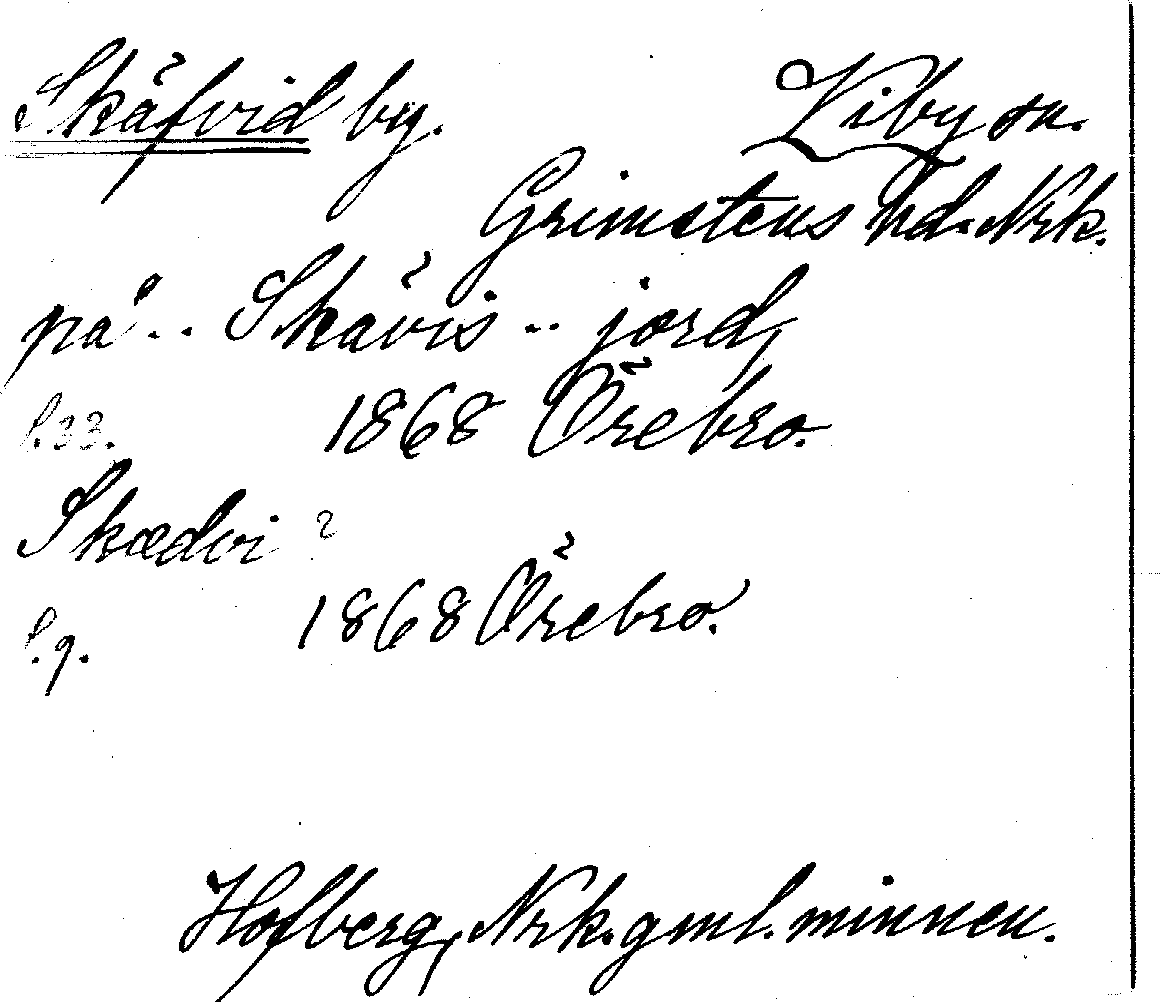 Skäfvid by. Viby sn.
Grimstens hd. Nrk.
på .. Skävis .. jord,
s.33. 1868 Örebro.
Skædvi ?
s.9. 1868 Örebro.
Hofberg, Nrk. gml. minnen.